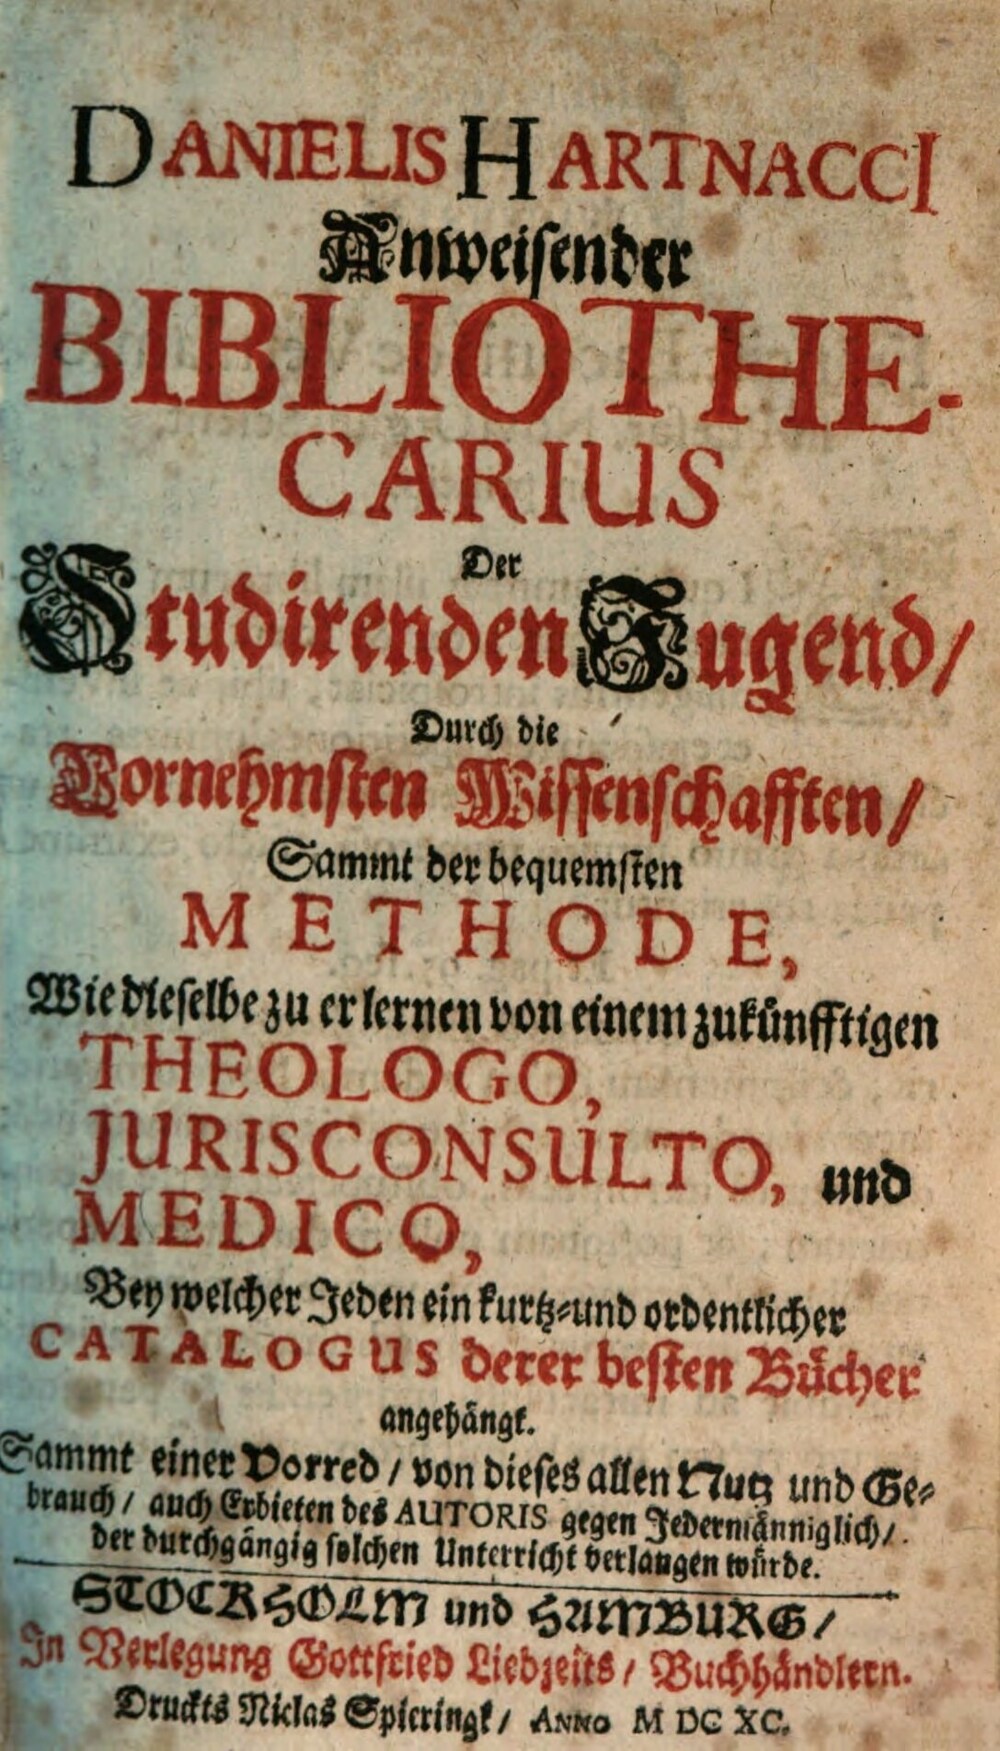 DANIELIS HARTNACCI
Anweisender
BIBLIOTHE-
CARIUS
Der
Studirenden Jugend/
Durch die
Vornehmsten Wissenschafften/
Sammt der bequemsten
METHODE,
Wie dieselbe zu erlernen von einem zukünfftigen
THEOLOGO,
JURISCONSULTO, und
MEDICO,
Bey welcher Jeden ein kurtz-und ordentlicher
CATALOGUS derer besten Bücher
angehängt.
Sammt einer Vorred / von dieses allen Nutz und Ge-
brauch / auch Erbieten des AUTORIS gegen Jedermänniglich /
der durchgängig solchen Unterricht verlangen würde.
STOCKHOLM und HAMBURG /
In Verlegung Gottfried Liebzeits / Buchhändlern.
Druckts Niclas Spieringk / ANNO M DC XC.